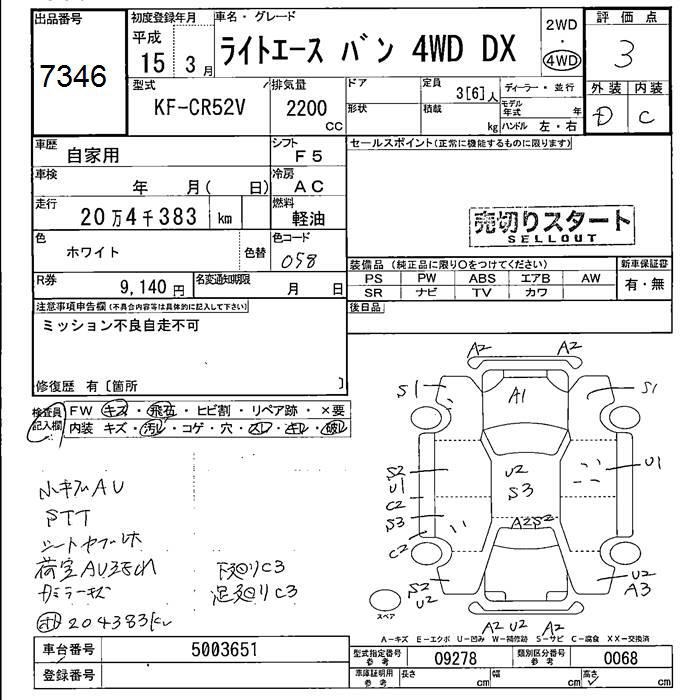 出品番号
7346
初度登録年月
平成
15 3月
車名・グレード
ライトエース バン 4WD DX
2WD
・
4WD
評価点
3
外装 内装
D C
型式
KF-CR52V
排気量
2200
CC
ドア
形状
定員
3[6]人
積載
kg
ディーラー・並行
モデル年式 年
ハンドル 左・右
車歴
自家用
シフト
F5
セールスポイント(正常に機能するものに限ります)
車検
年 月( 日)
冷房
AC
走行
20万4千383 km
燃料
軽油
売切りスタート
SELLOUT
色
ホワイト
色替
色コード
058
装備品 (純正品に限り○をつけてください)
新車保証書
PS PW ABS エアB AW
SR ナビ TV カワ
有・無
R券
9,140円
名変通知期限
月 日
後日品
注意事項申告欄(不具合内容等は具体的に記入して下さい)
ミッション不良自走不可
修復歴 有[箇所 ]
検査員
記入欄
FW キズ・飛石・ヒビ割・リペア跡・×要
内装 キズ・汚レ・コゲ・穴・スレ・キレ・破レ
A2 A2
S1 A1 S1
S2 U2 U1
U1 S3
C2
S3 A2 S2
C2
S2 U2
U2 A3
A2 U2 A2
スペア
小キズAU
STT
荷室AUヨゴレ
下廻りC3
足廻りC3
204383km
A-キズ E-エクボ U-凹み W-補修跡 S-サビ C-腐食 XX-交換済
車台番号
5003651
型式指定番号
参考
09278
類別区分番号
参考
0068
登録番号
車庫証明用
参考
長さ cm
幅 cm
高さ cm